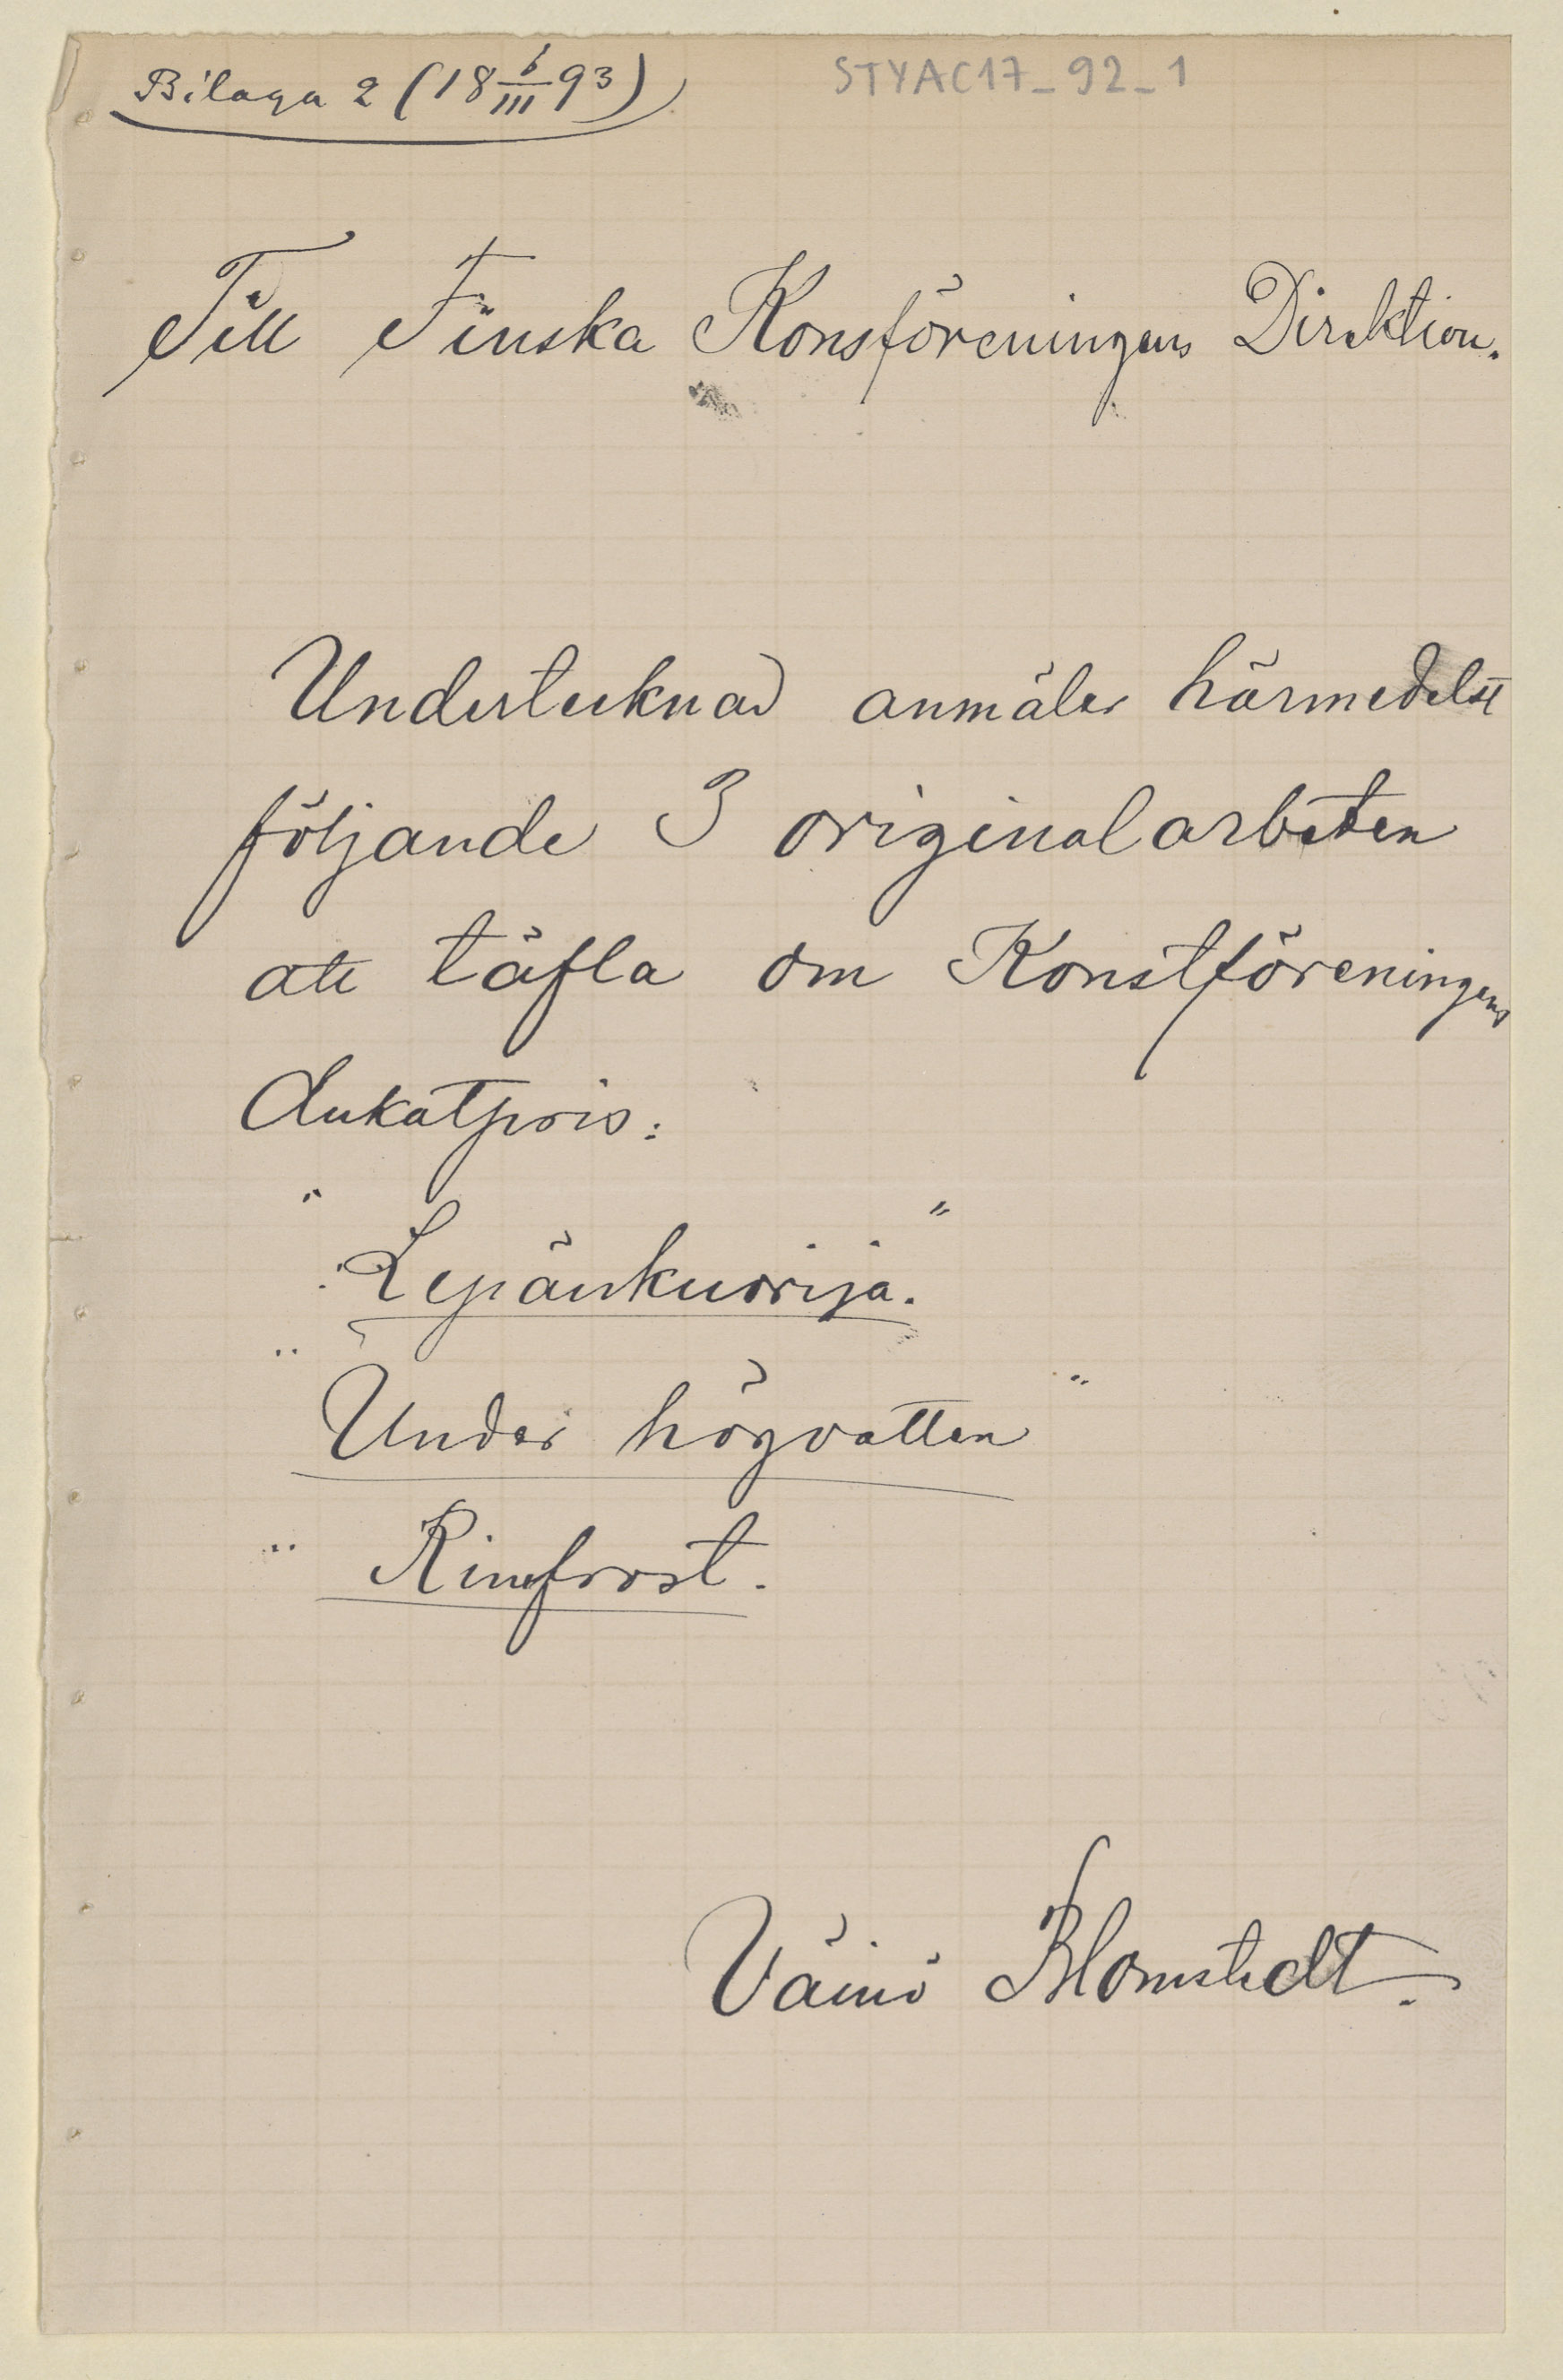 Bilaga 2 (18 6/III 93)
STYAC17_92_1
Till Finska Konsföreningens Direktion.
Undertecknad anmäler härmedelst
följande 3 originalarbeten
att täfla om Konstföreningens
dukatpris:
"Lepänkuorija."
"Under högvatten"
"Rimfrost.
Väinö Blomstedt.